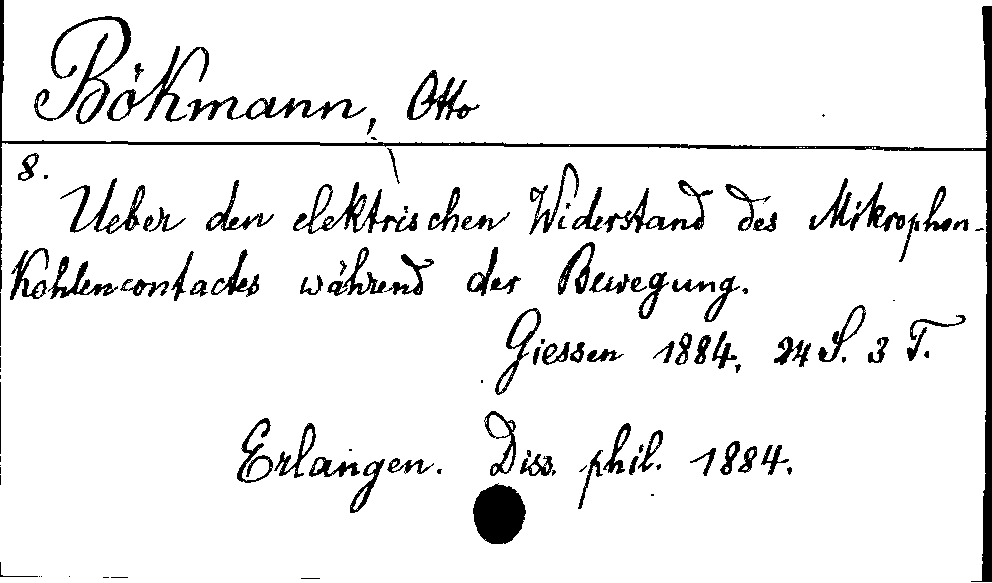 Bökmann, Otto
8.
Ueber den elektrischen Widerstand des Mikrophon-
Kohlencontactes während der Bewegung.
Giessen 1884, 24 S. 3 T.
Erlangen. Diss. phil. 1884.